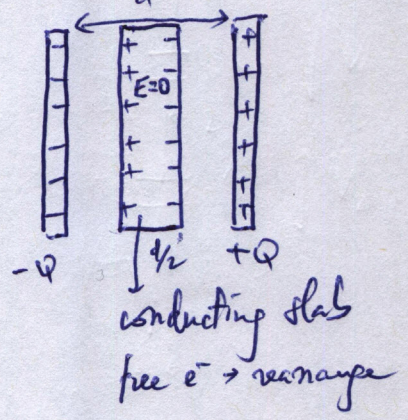 d
E=0
-Q
d/2
+Q
conducting slab
free e⁻ → rearrange